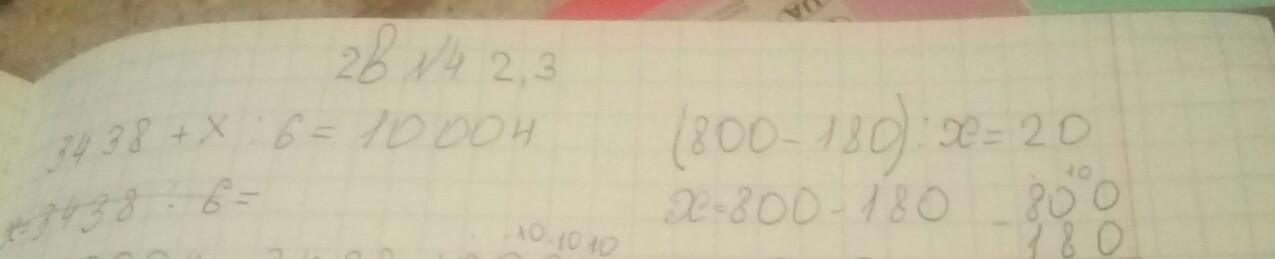 2В №4 2,3
3438 + x : 6 = 10004
(800 - 180) : x = 20
x=3438 : 6 =
x=800 - 180
10
- 800
180
10 10 10